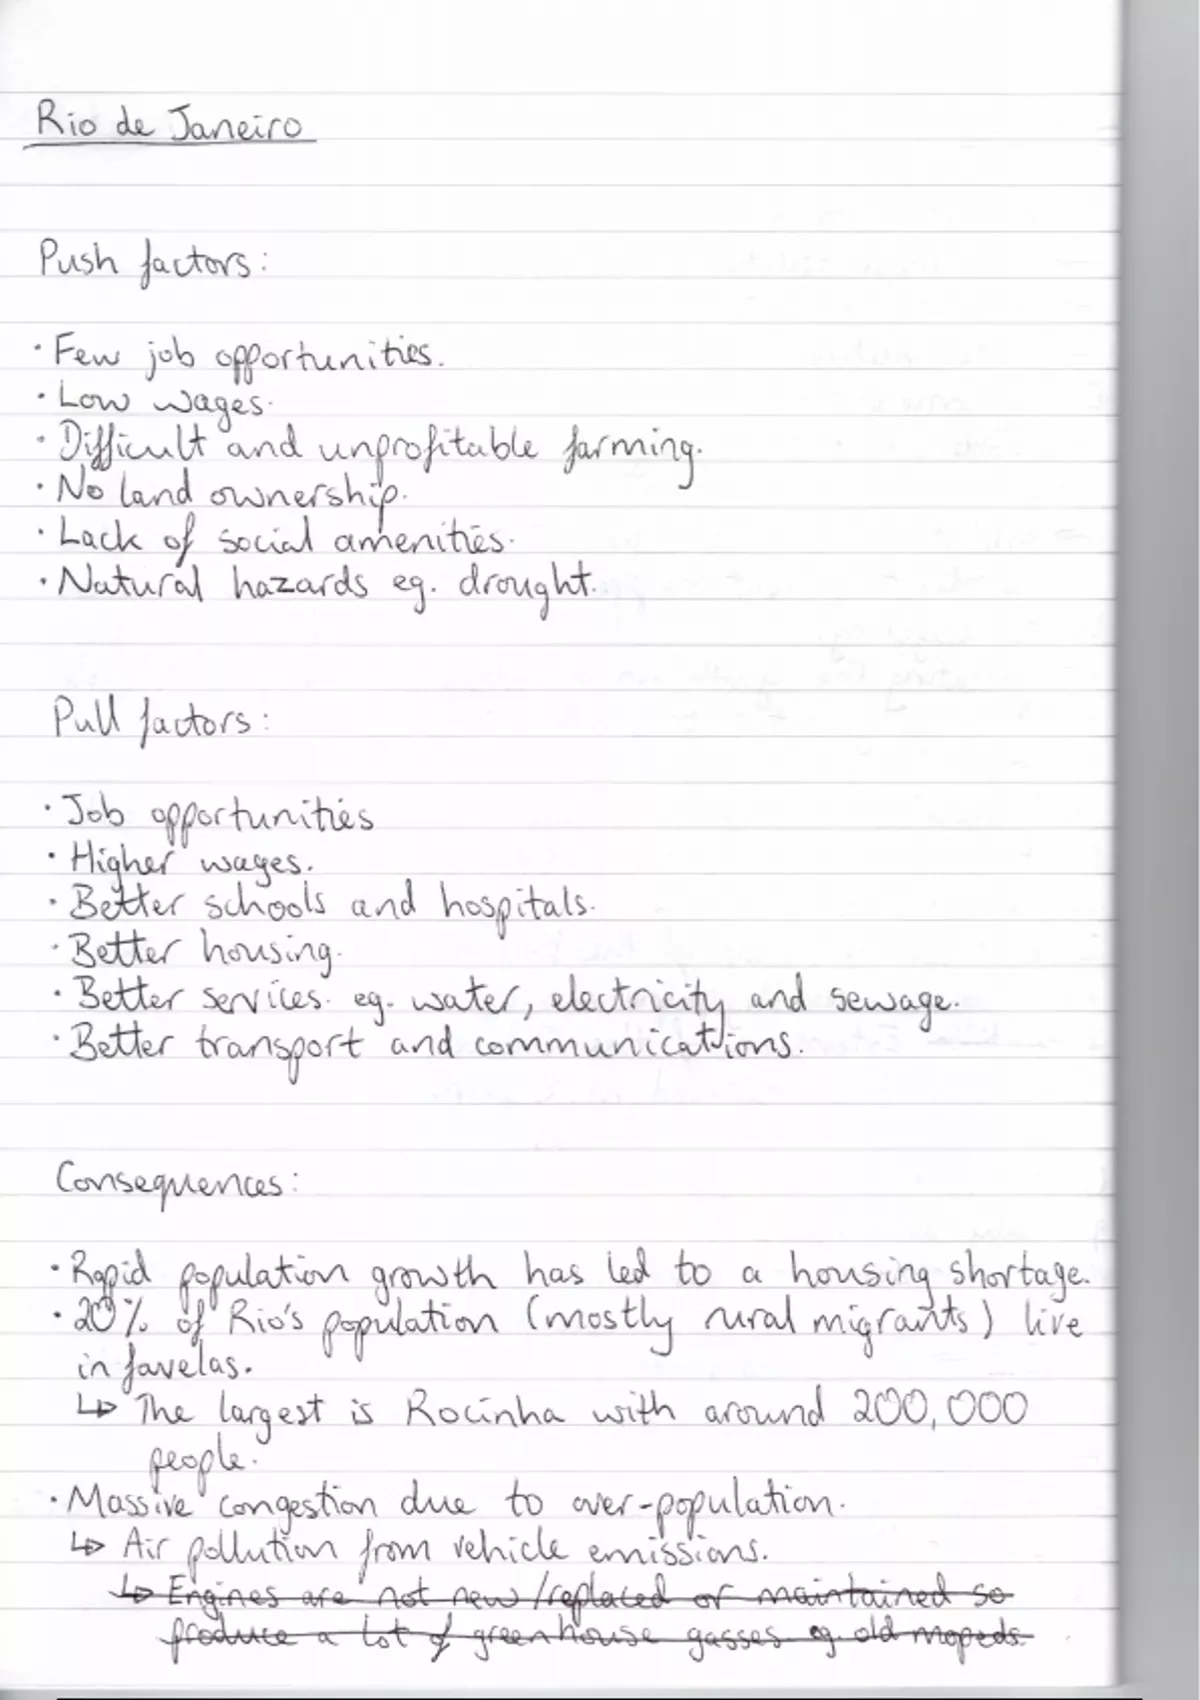 Rio de Janeiro
Push factors:
· Few job opportunities.
· Low wages.
· Difficult and unprofitable farming.
· No land ownership.
· Lack of social amenities.
· Natural hazards eg. drought.
Pull factors:
· Job opportunities
· Higher wages.
· Better schools and hospitals.
· Better housing.
· Better services. eg. water, electricity and sewage.
· Better transport and communications.
Consequences:
· Rapid population growth has led to a housing shortage.
· 20% of Rio's population (mostly rural migrants) live
in favelas.
↳ The largest is Rocinha with around 200,000
people.
· Massive congestion due to over-population.
↳ Air pollution from vehicle emissions.
↳ Engines are not new/replaced or maintained so
produce a lot of greenhouse gasses eg. old mopeds.